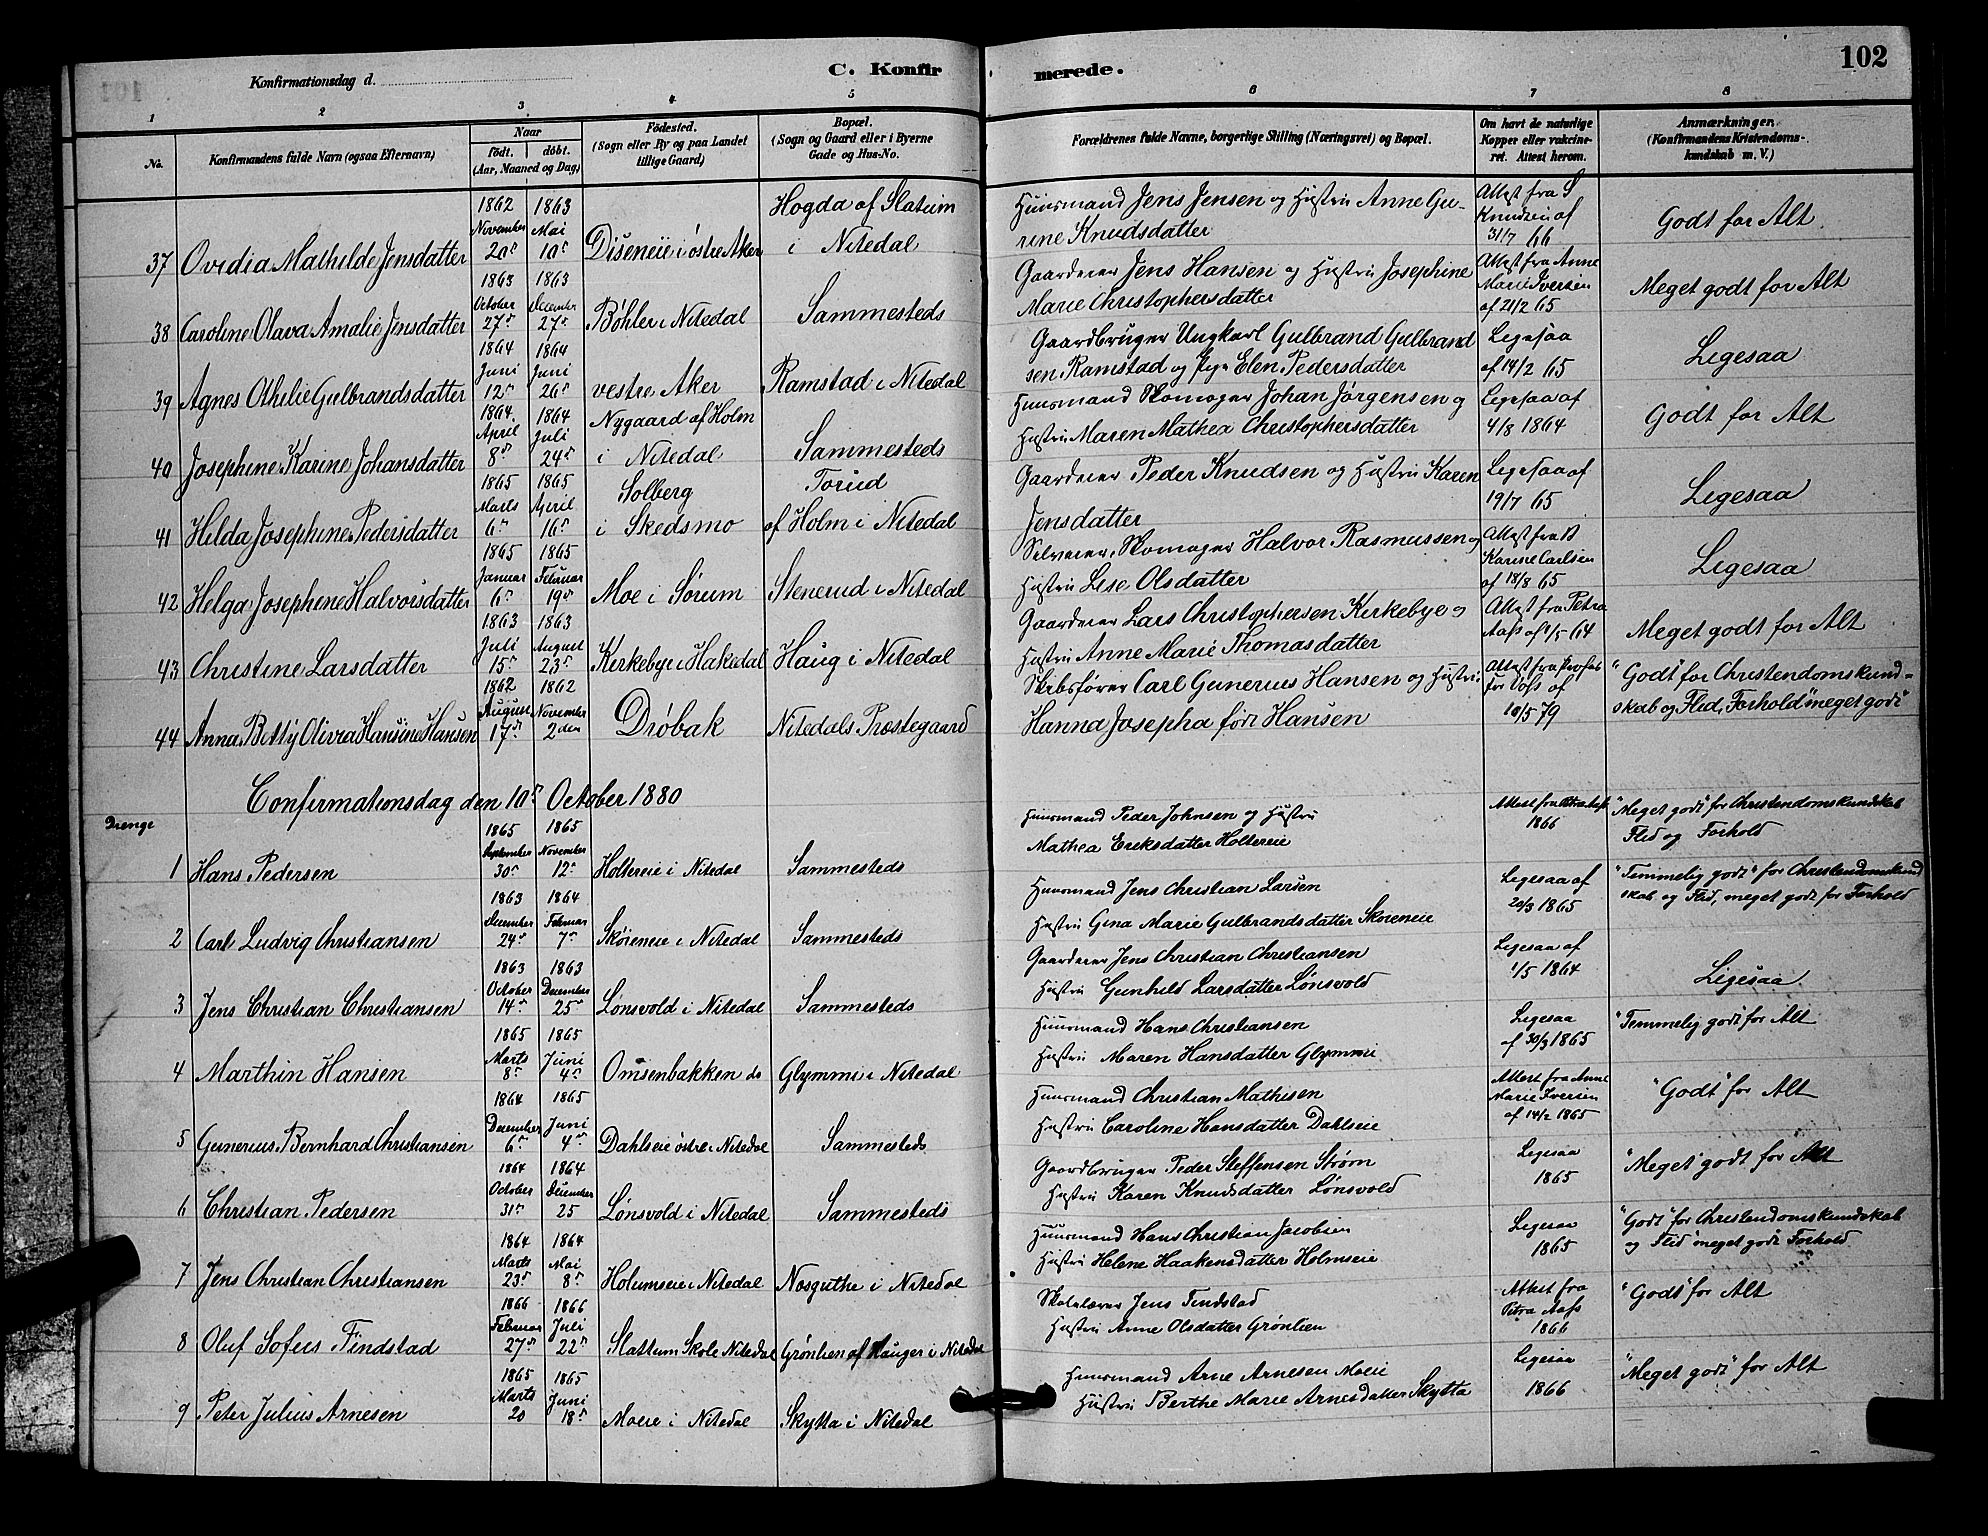 Konfirmationsdag d. C. Konfirmerede. 102
1 2 3 4 5 6 7 8
No. Konfirmandens fulde Navn (ogsaa Efternavn) Naar født. døbt. (Aar, Maaned og Dag) Fødested. (Sogn eller By og paa Landet tillige Gaard) Bopæl. (Sogn og Gaard eller i Byerne Gade og Hus-No. Forældrenes fulde Navne, borgerlige Stilling (Næringsvei) og Bopæl. Om havt de naturlige Kopper eller vakcineret. Attest herom. Anmærkninger. (Konfirmandens Kristendomskundskab m. V.)
37 Ovidia Mathilde Jensdatter 1862 November 20de 1863 Mai 10de Diseneie i østre Aker Hogda af Slatum i Nitedal Huusmand Jens Jensen og Hustru Anne Gurine Knudsdatter Attest fra S Knudsen af 31/7 66 Godt for Alt
38 Caroline Olava Amalie Jensdatter 1863 October 27de 1863 December 27de Bøhler i Nitedal Sammesteds Gaardeier Jens Hansen og Hustru Josephine Marie Christophersdatter Attest fra Anne Marie Iversen af 21/2 65 Meget godt for Alt
39 Agnes Othilie Gulbrandsdatter 1864 Juni 12de 1864 Juni 26de vestre Aker Ramstad i Nitedal Gaardbruger Ungkarl Gulbrand Gulbrandsen Ramstad og Pige Elen Pedersdatter Ligesaa af 14/2 65 Ligesaa
40 Josephine Karine Johansdatter 1864 April 8de 1864 Juli 24de Nygaard af Holm i Nitedal Sammesteds Huusmand Skomager Johan Jørgensen og Hustru Maren Mathea Christophersdatter Ligesaa af 4/8 1864 Godt for Alt
41 Hilda Josephine Pedersdatter 1865 Marts 6te 1865 April 16de Solberg i Skedsmo Torud af Holm i Nitedal Gaardeier Peder Knudsen og Hustru Karen Jensdatter Ligesaa af 19/7 65 Ligesaa
42 Helga Josephine Halvorsdatter 1865 Januar 6te 1865 Februar 19de Moe i Sørum Stenerud i Nitedal Selveier, Skomager Halvor Rasmussen og Hustru Lise Olsdatter Attest fra Karine Carlsen af 18/8 65 Ligesaa
43 Christine Larsdatter 1863 Juli 15de 1863 August 23de Kirkebye i Hakedal Haug i Nitedal Gaardeier Lars Christophersen Kirkebye og Hustru Anne Marie Thomasdatter Attest fra Petra Aass af 1/5 64 Meget godt for Alt
44 Anna Betty Olivia Hansine Hansen 1862 August 17de 1862 November 2den Drøbak Nitedals Præstegaard Skibsfører Carl Gunerius Hansen og Hustru Hanna Josepha født Hansen Attest fra Professor Voss af 10/5 79 "Godt" for Christendomskundskab og Flid, Forhold "meget godt"
Confirmationsdag den 10de October 1880
Drenge
1 Hans Pedersen 1865 September 30de 1865 November 12te Holtereie i Nitedal Sammesteds Huusmand Peder Johnsen og Hustru Mathea Eriksdatter Holtereie Attest fra Petra Aass 1866 "Meget godt" for Christendomskundskab Flid og Forhold
2 Carl Ludvig Christiansen 1863 December 24de 1864 Februar 7de Skøieneie i Nitedal Sammesteds Huusmand Jens Christian Larsen Hustru Gina Marie Gulbrandsdatter Skøieneie Ligesaa af 20/3 1865 "Temmelig godt" for Christendomskundskab og Flid, meget godt for Forhold
3 Jens Christian Christiansen 1863 October 14de 1863 December 25de Lønsvold i Nitedal Sammesteds Gaardeier Jens Christian Christiansen Hustru Gunhild Larsdatter Lønsvold Ligesaa af 1/5 1864 Ligesaa
4 Marthin Hansen 1865 Marts 8de 1865 Juni 4de Omsenbakken do Glymmi i Nitedal Huusmand Hans Christiansen Hustru Maren Hansdatter Glymmi Ligesaa af 30/3 1865 "Temmelig godt" for Alt
5 Gunerius Bernhard Christiansen 1864 December 6te 1865 Juni 4de Dahlseie østre i Nitedal Sammesteds Huusmand Christian Mathisen Hustru Caroline Hansdatter Dahlseie Attest fra Anne Marie Iversen af 14/2 1865 "Godt" for Alt
6 Christian Pedersen 1864 October 31te 1864 December 25 Lønsvold i Nitedal Sammesteds Gaardbruger Peder Steffensen Strøm Hustru Karen Knudsdatter Lønsvold Ligesaa 1865 "Meget godt for Alt
7 Jens Christian Christiansen 1864 Marts 23de 1864 Mai 8de Holumseie i Nitedal Nosguthe i Nitedal Huusmand Hans Christian Jacobsen Hustru Helene Haakensdatter Holmseie Ligesaa 1865 "Godt" for Christendomskundskab og Flid "meget godt" Forhold
8 Oluf Sofus Findstad 1866 Februar 27de 1866 Juli 22de Slattum Skole Nitedal Grønlien af Hauger i Nitedal Skolelærer Jens Findstad Hustru Anne Olsdatter Grønlien Attest fra Petra Aass 1866 "Godt" for Alt
9 Peter Julius Arnesen 1865 Marts 20 1865 Juni 18de Moeie i Nitedal Skytta i Nitedal Huusmand Arne Arnesen Moeie Hustru Berthe Marie Arnesdatter Skytta Ligesaa 1866 "Meget godt" for Alt